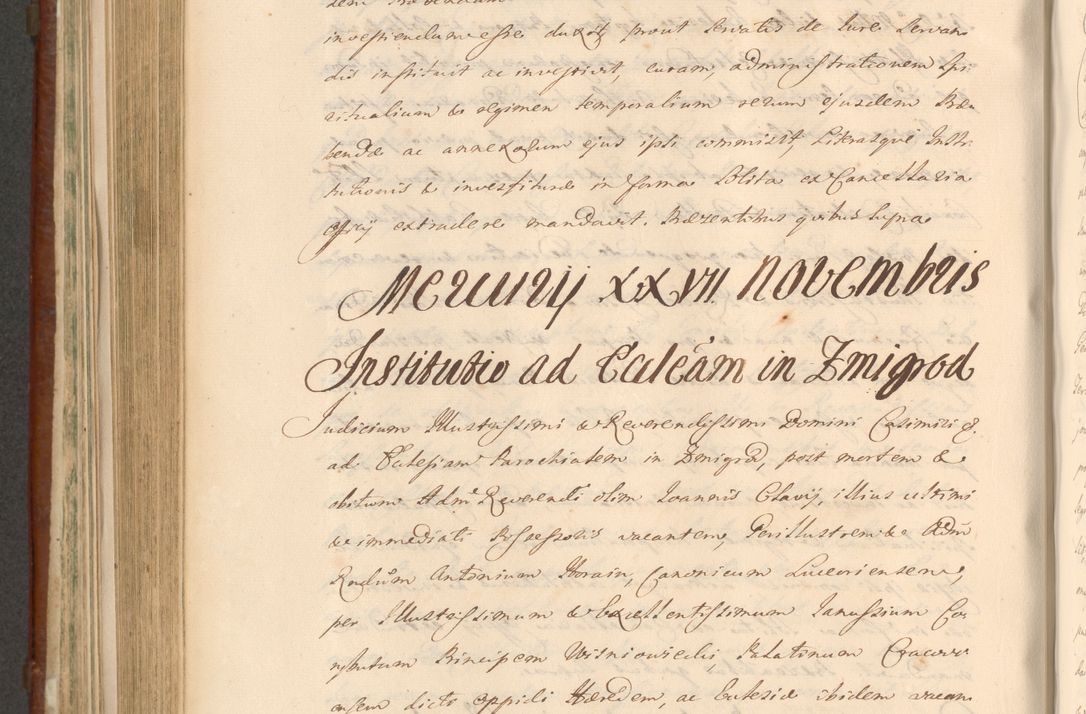 investiendum esse duxit prout servatis de Iure Servan
dis instituit ac investivit, curam, administrationem Spi
ritualium & regimen temporalium rerum ejusdem Præ
bendæ ac annexorum ejus ipsi commisit, Literasque Insti
tutionis & investituræ in forma solita ex Cancellaria
extradere mandavit. Præsentibus quibus supra
Mercurij XXVII Novembris
Institutio ad Eccleâm in Zmigrod
Judicium Illustrissimi & Reverendissimi Domini Casimiri &.
ad Ecclesiam Parochialem in Zmigrod, post mortem &
obitum Adm Reverendi olim Ioannis Clavij, illius ultimi
& immediati Possessoris vacantem, Perillustrem & Adm
Rndum Antonium Morain, Canonicum Luceoriensem,
per Illustrissimum & Excellentissimum Ianussium Co
ributum Principem Wisniowiecki Palatinum Cracovi
ensem dicti oppidi Hæredem, ac Ecclesiæ ibidem vacan